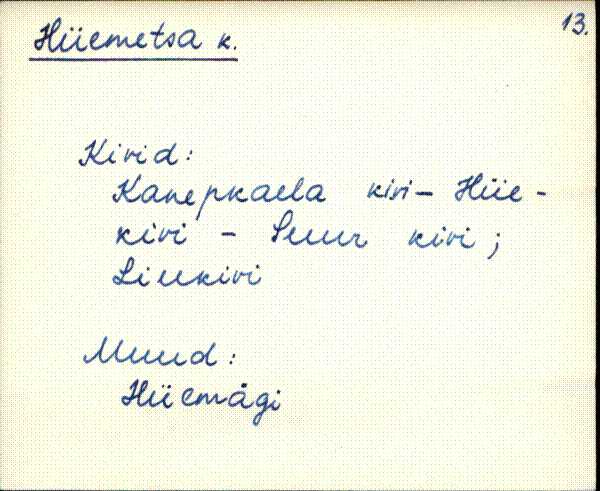 13.
Hüemetsa k.
Kivid:
Kanepkaela kivi - Hüe-
kivi - Suur kivi;
Liukivi
Muud:
Hüemägi